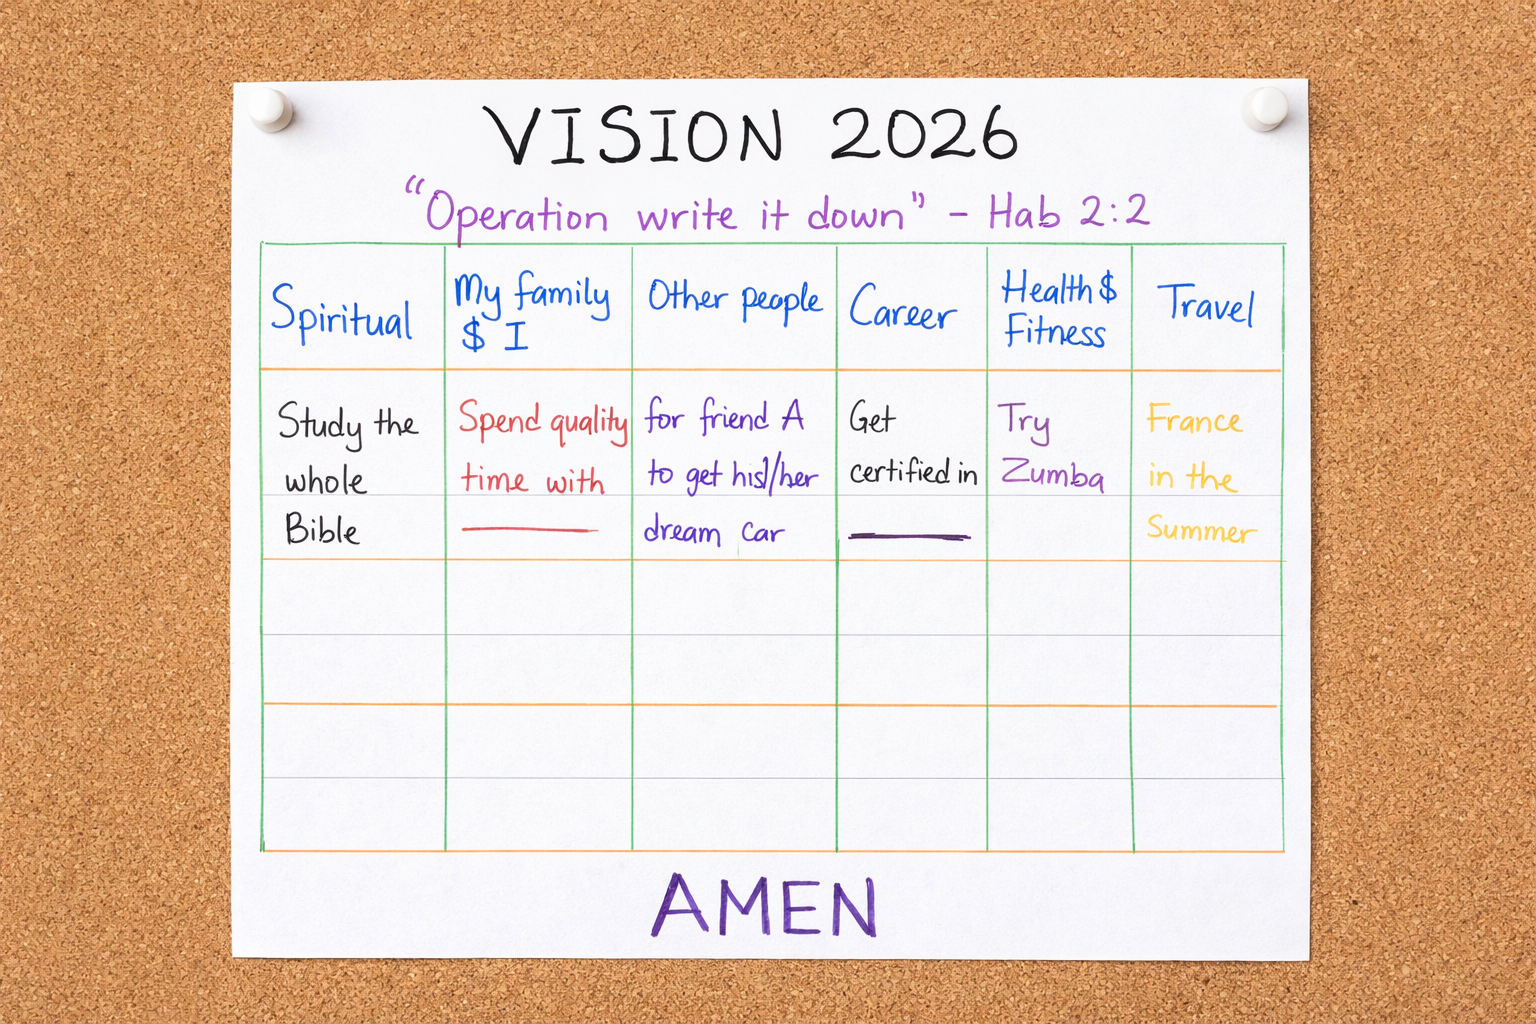 VISION 2026
"Operation write it down" - Hab 2:2
Spiritual
My family
$ I
Other people
Career
Health $
Fitness
Travel
Study the
whole
Bible
Spend quality
time with
for friend A
to get his/her
dream car
Get
certified in
Try
Zumba
France
in the
Summer
AMEN